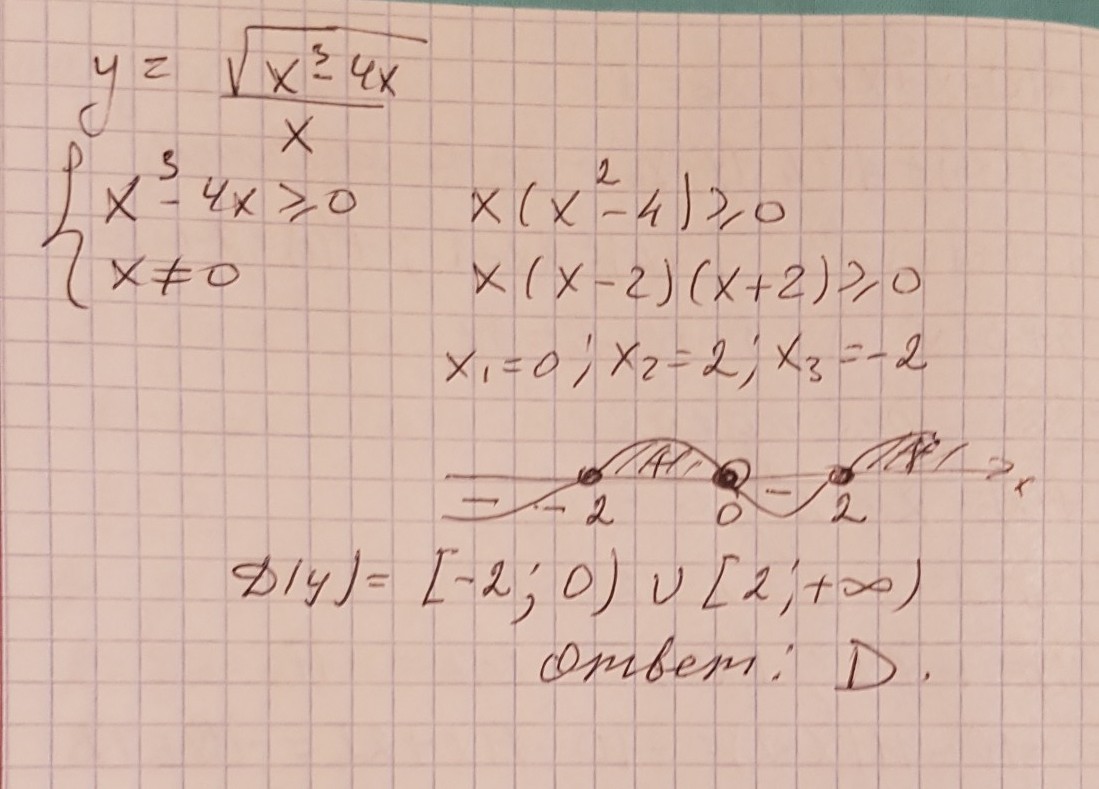 y = √(x³ - 4x) / x
{ x³ - 4x ≥ 0    x(x² - 4) ≥ 0
{ x ≠ 0    x(x - 2)(x + 2) ≥ 0
x₁ = 0; x₂ = 2; x₃ = -2
- + - + x
-2 0 2
D(y) = [-2; 0) ∪ [2; +∞)
Ответ: D.